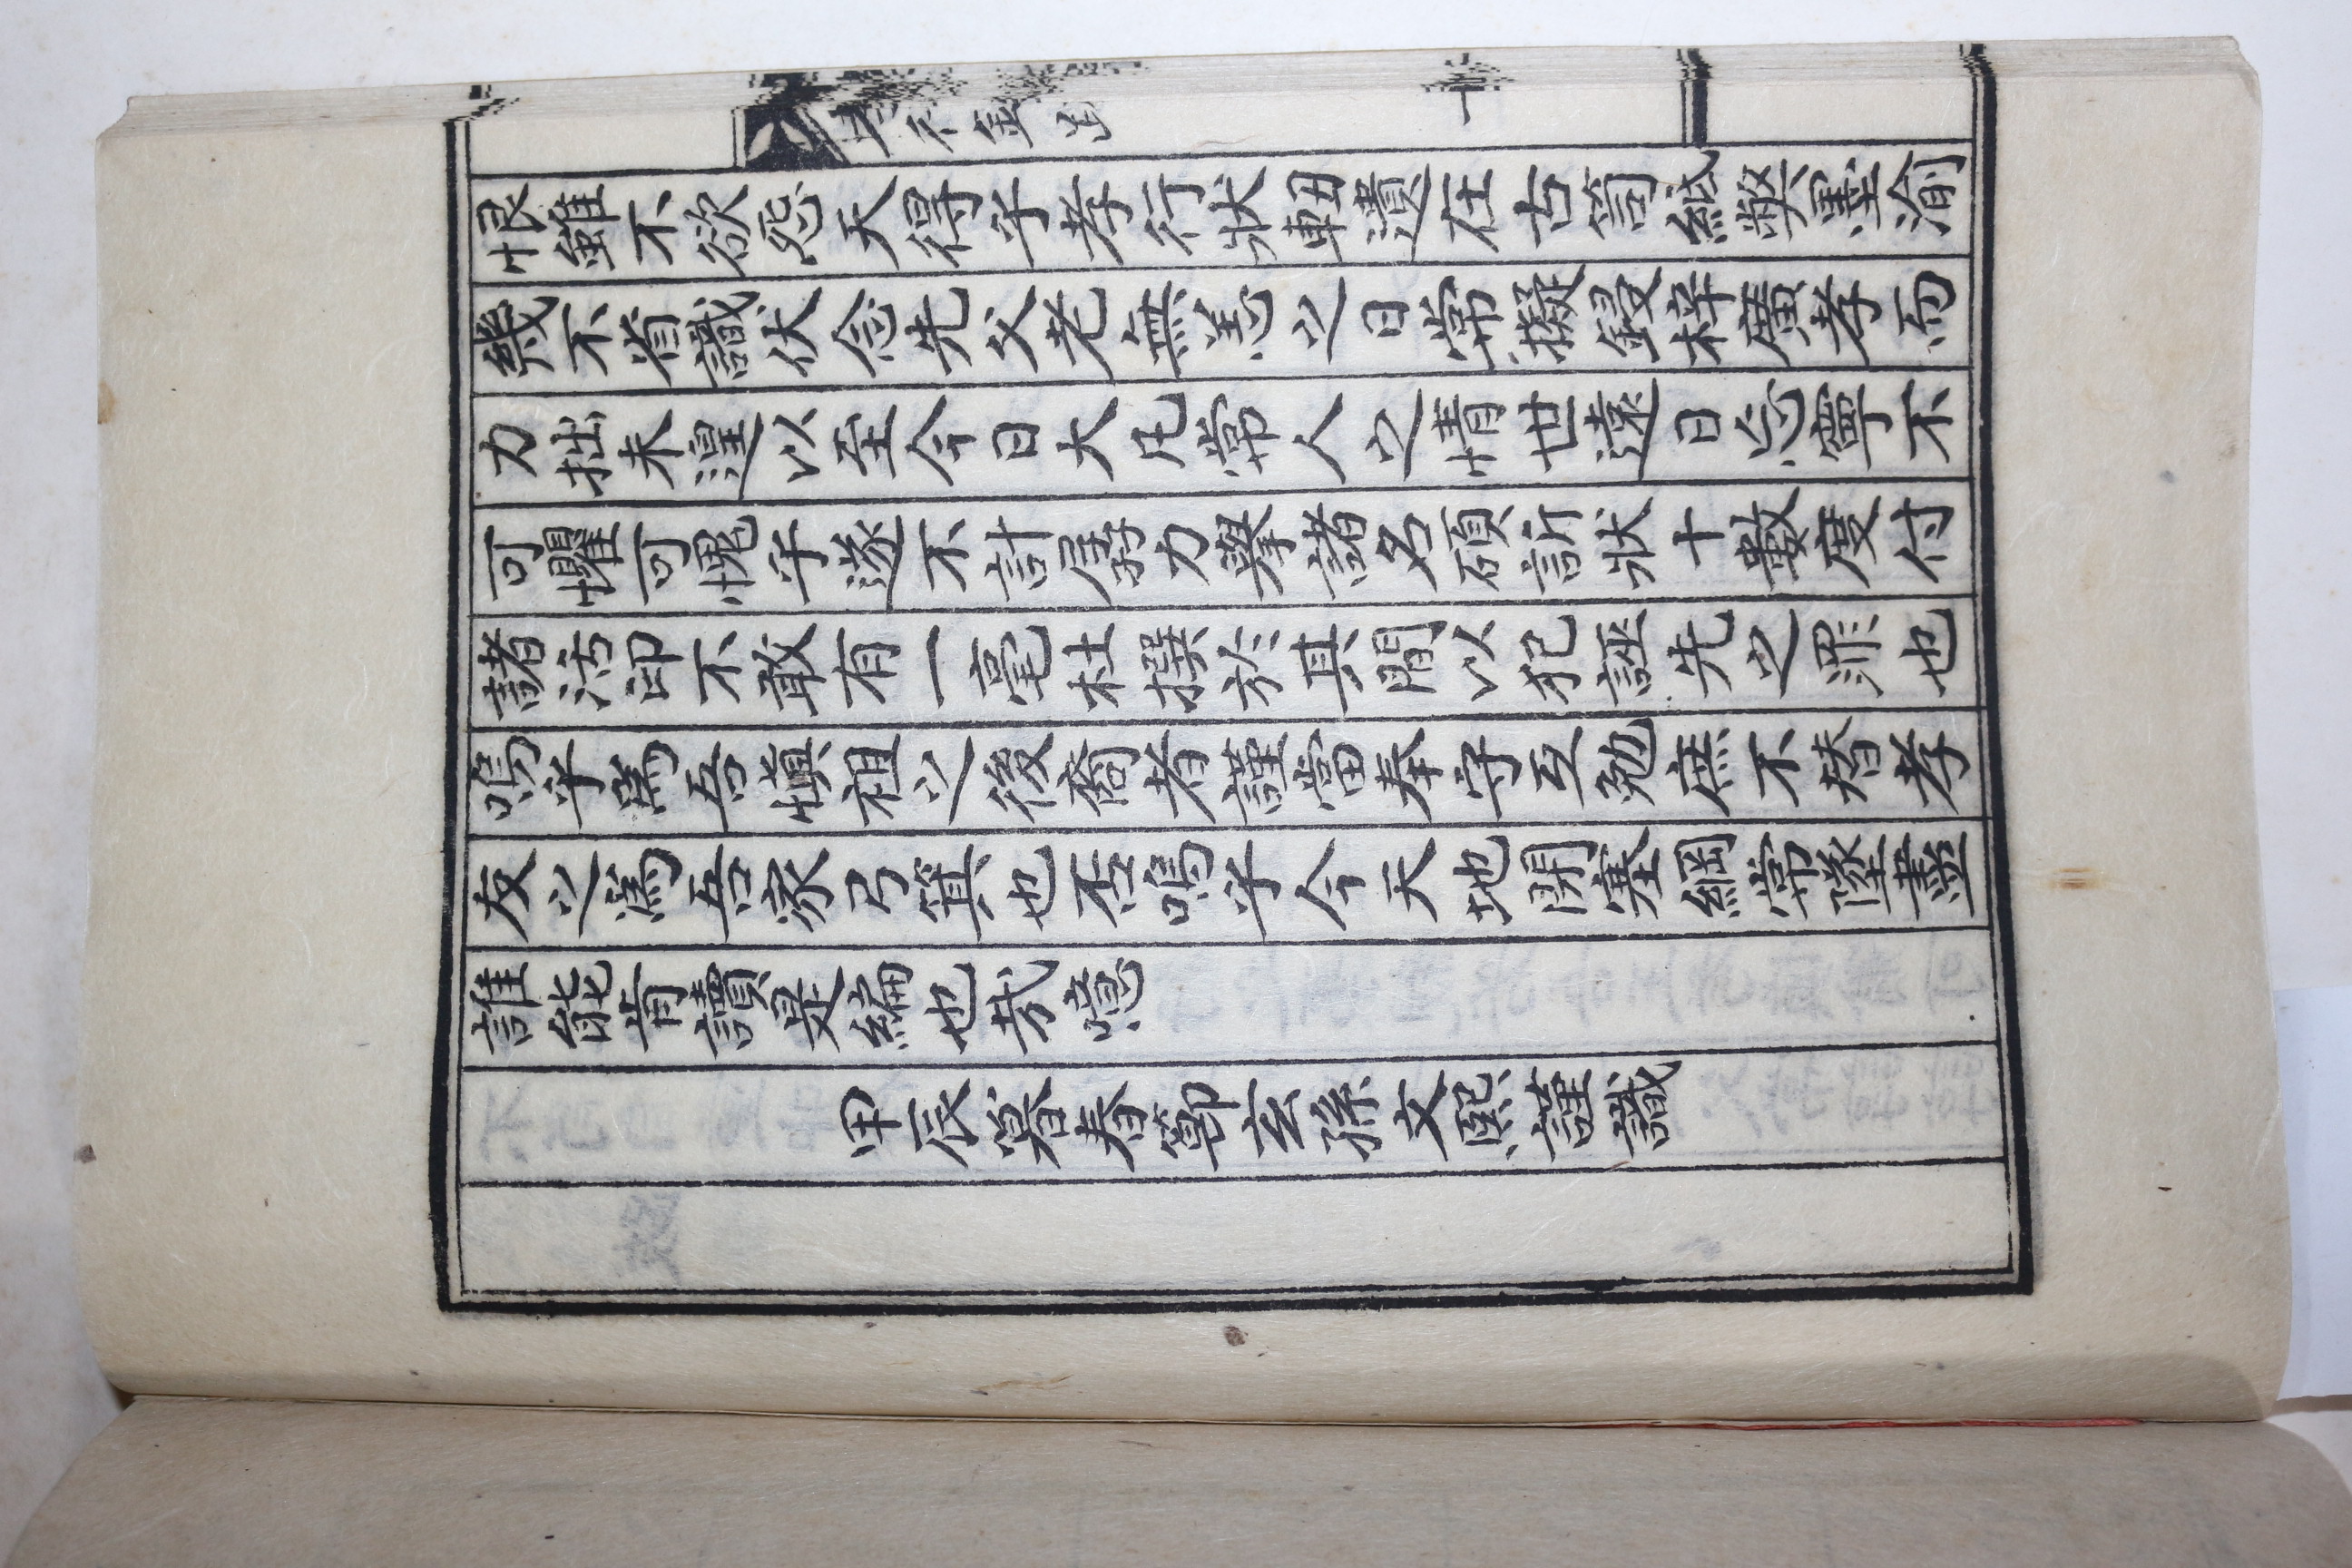 孝行錄跋
十
恨雖不欲怨天得乎孝行狀軔遺在古笥紙獘墨渝
幾不省識伏念先父老無恙之日常擬鋟梓廣孝而
力拙未遑以至今日大凡常人之情世遠日忘寧不
可懼可愧乎遂不計孱力擧諸名碩訴狀十數度付
諸活印不敢有一毫杜撰於其間以犯誣先之罪也
嗚乎爲吾愼祖之後裔者謹當奉守互勉庶不替孝
友之爲吾家弓箕也否嗚乎今天地閉塞綱常墜盡
誰能肯讀是編也㢤噫
甲辰暮春節玄孫文熙謹識